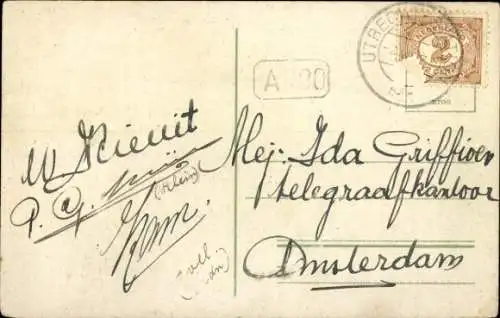 UTRECHT
2
A 200
W Kievit
P. G.
(Klein)
Ham.
Mej: Ida Griffioen
telegraafkantoor
Amsterdam